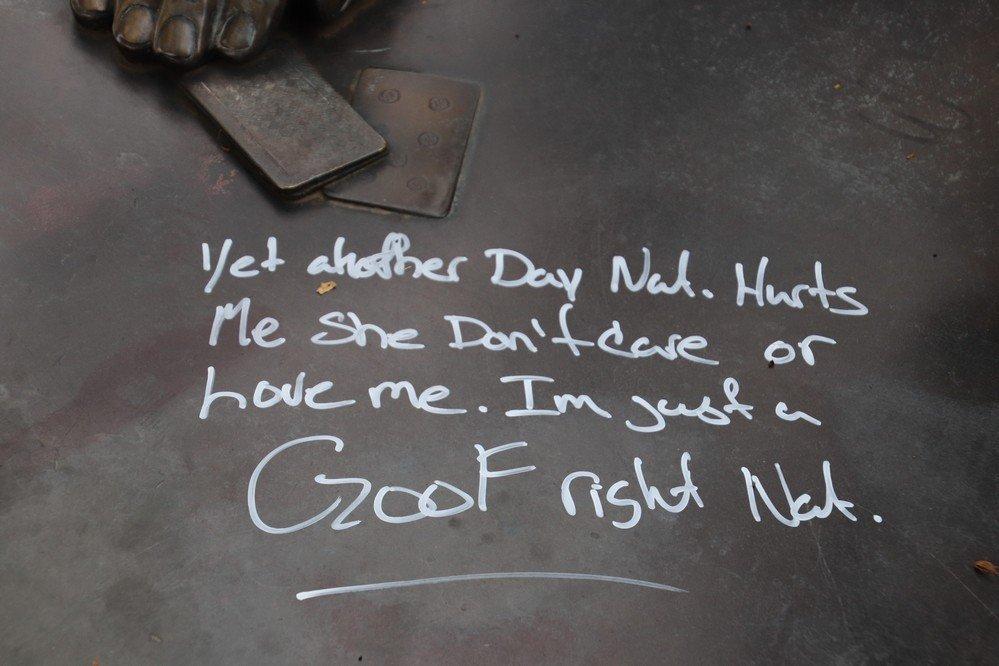 Yet another Day Nat. Hurts
Me She Don't Care or
Love me. Im just a
GooF right Nat.